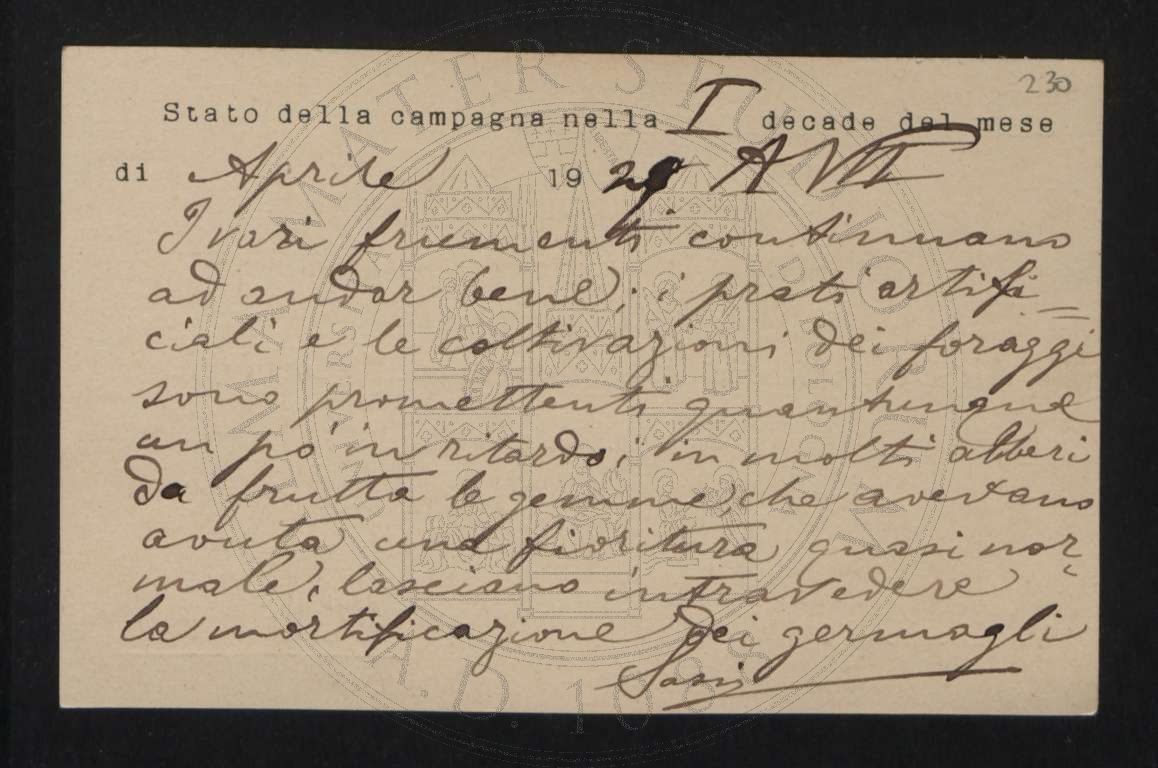 230
Stato della campagna nella I decade del mese
di Aprile 1929 A VII
I vari frumenti continuano
ad andar bene; i prati artifi=
ciali e le coltivazioni dei foraggi
sono promettenti quantunque
un po' in ritardo; in molti alberi
da frutta le gemme, che avevano
avuta una fioritura quasi nor-
male, lasciano intravedere
la mortificazione dei germogli